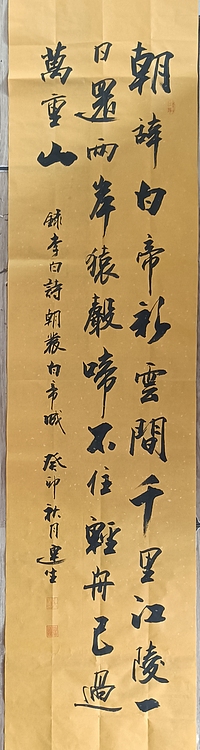 朝辞白帝彩雲間千里江陵一
日還兩岸猿聲啼不住輕舟已過
萬重山
録李白詩朝發白帝城 癸卯秋月建生